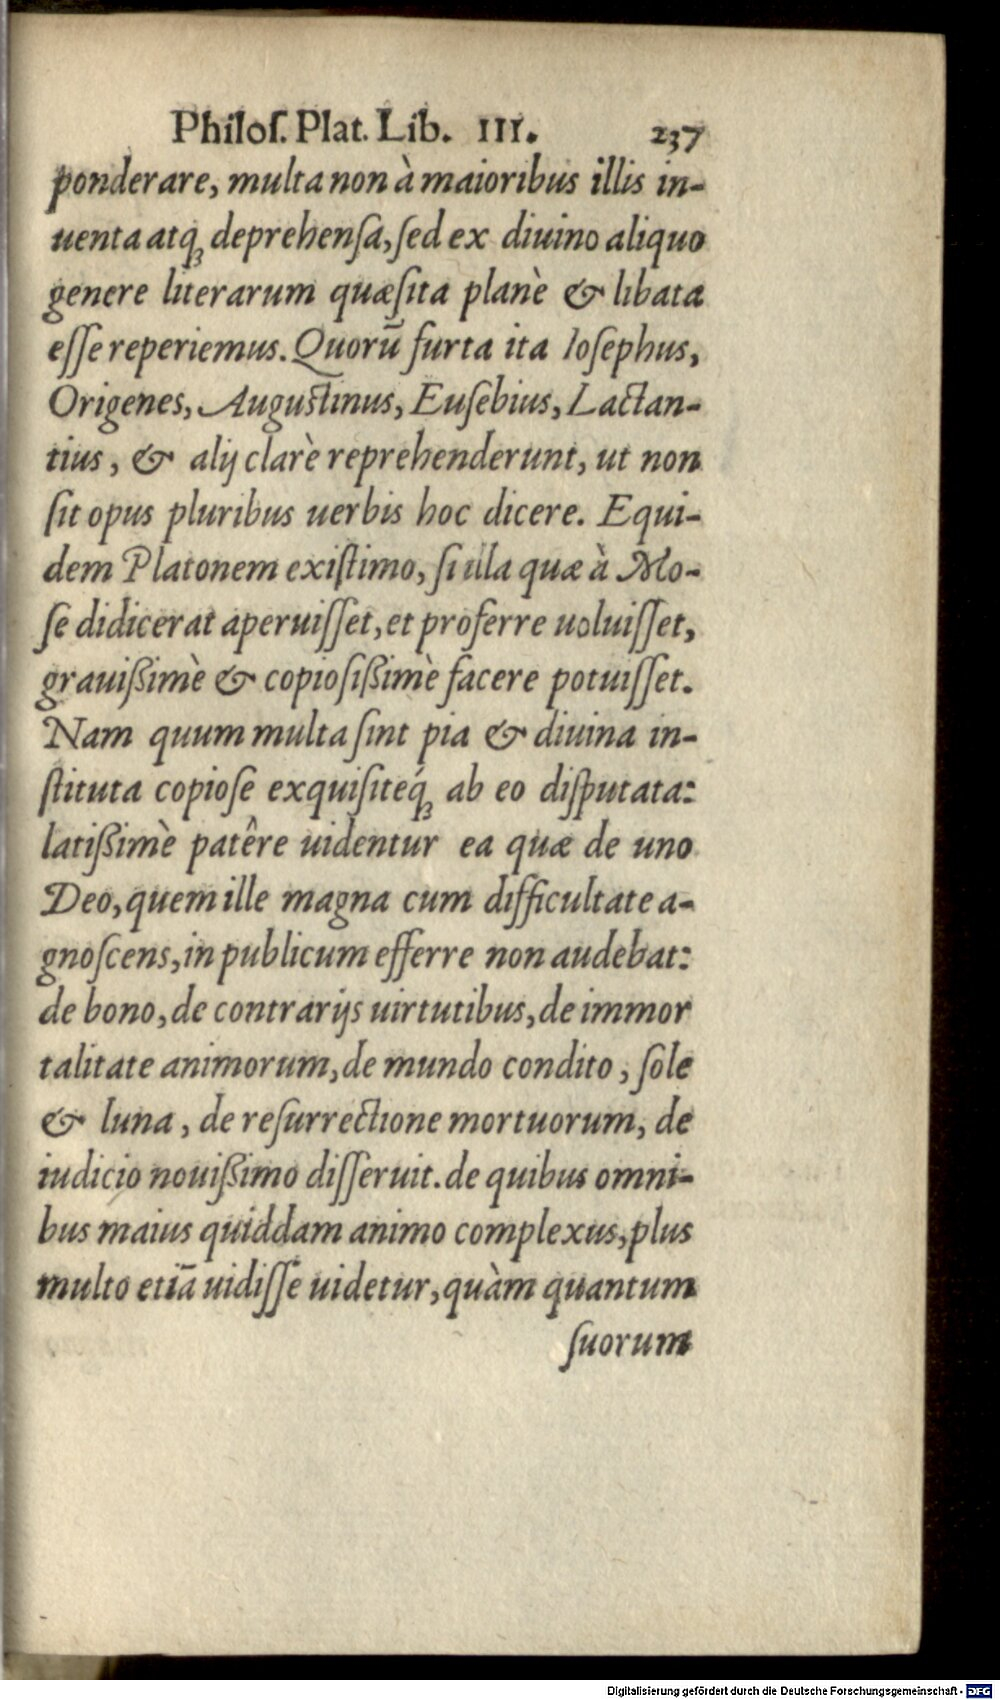 Philoſ. Plat. Lib. III. 237
ponderare, multa non à maioribus illis in-
uenta atq; deprehenſa, ſed ex diuino aliquo
genere literarum quæſita planè & libata
eſſe reperiemus. Quorũ furta ita Ioſephus,
Origenes, Auguſtinus, Euſebius, Lactan-
tius, & alij clarè reprehenderunt, ut non
ſit opus pluribus uerbis hoc dicere. Equi-
dem Platonem exiſtimo, ſi illa quæ à Mo-
ſe didicerat aperuiſſet, et proferre uoluiſſet,
grauißimè & copioſißimè facere potuiſſet.
Nam quum multa ſint pia & diuina in-
ſtituta copioſe exquiſiteq́; ab eo diſputata:
latißimè patêre uidentur ea quæ de uno
Deo, quem ille magna cum difficultate a-
gnoſcens, in publicum efferre non audebat:
de bono, de contrarijs uirtutibus, de immor
talitate animorum, de mundo condito, ſole
& luna, de reſurrectione mortuorum, de
iudicio nouißimo diſſeruit. de quibus omni-
bus maius quiddam animo complexus, plus
multo etiã uidiſſe uidetur, quàm quantum
ſuorum
Digitalisierung gefördert durch die Deutsche Forschungsgemeinschaft - DFG